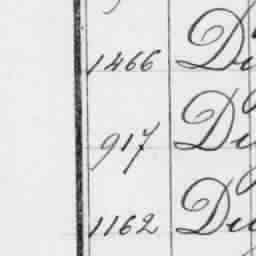 1466 Di
917 Di
1162 Du